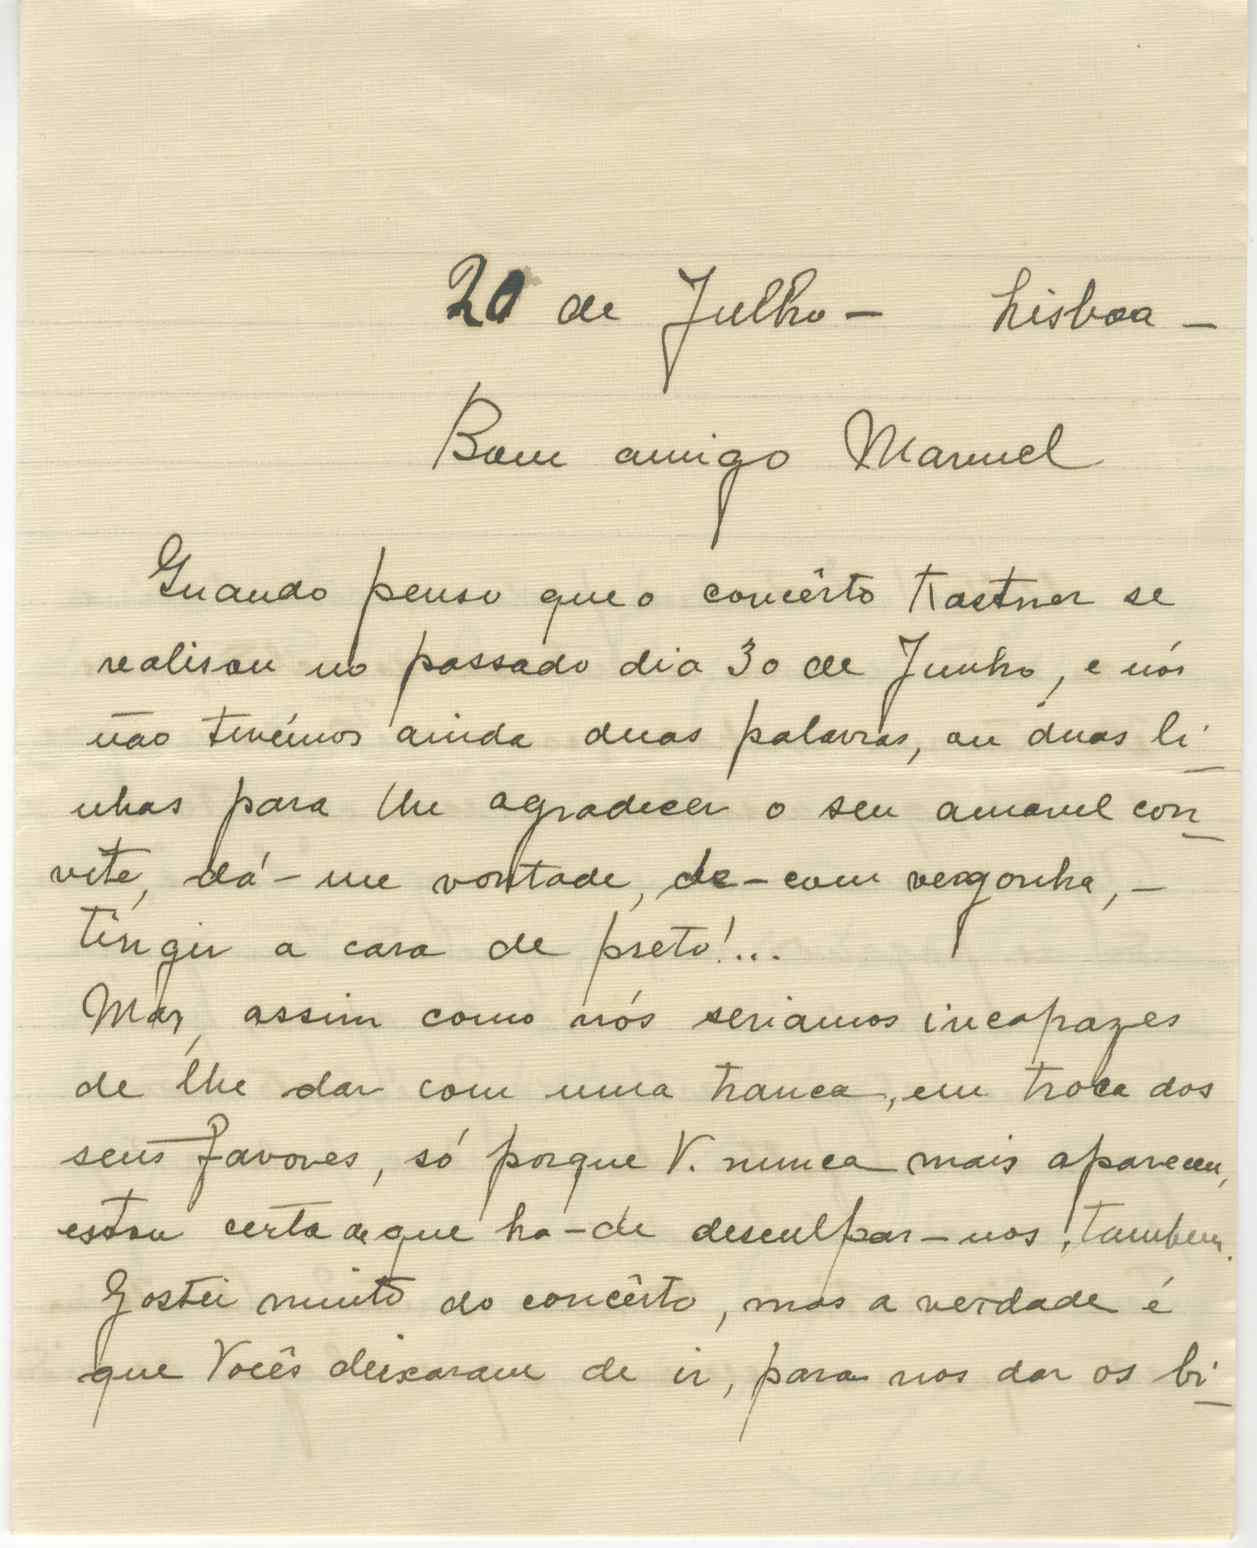 20 de Julho - Lisboa -
Bom amigo Manuel
Quando penso que o concêrto Kastner se
realisou no passado dia 30 de Junho, e nós
não tivémos ainda duas palavras, ou duas li-
nhas para lhe agradecer o seu amavel con-
vite, dá-me vontade, de - com vergonha, -
tingir a cara de preto!...
Mas, assim como nós seriamos incapazes
de lhe dar com uma tranca, em troca dos
seus favores, só porque V. nunca mais apareceu,
estou certa de que ha-de desculpar-nos, tambem.
Gostei muito do concêrto, mas a verdade é
que Vocês deixaram de ir, para nos dar os bi-